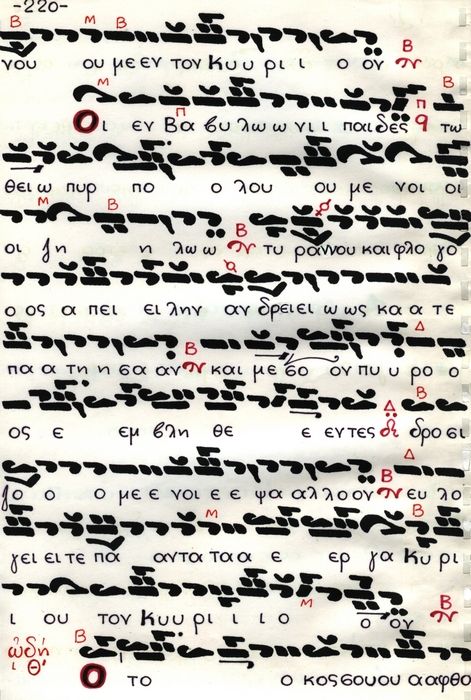 -220-
νου ου με εν τον Κυυ ρι ι ο ον
Οι εν Βα βυ λω ω νι ι παι δες τω
θει ω πυρ πο ο λου ου με νοι οι
οι ζη η λω ω τυ ραννου και φλο γο
ο ος α πει ει λην αν δρει ει ω ως κα α τε
πα α τη η σα αν και με σο ον πυ υ ρο ο
ος ε εμ βλη θε ε εν τες δρο σι
ζο ο ο με ε νοι ε ε ψα αλλο ον ευ λο
γει ει τε πα αν τα τα α ε ερ γα Κυ ρι
ι ου τον Κυυ ρι ι ι ο ο ον
ὠδὴ
ι Θ'
Ο το ο κος σου ου α αφθο